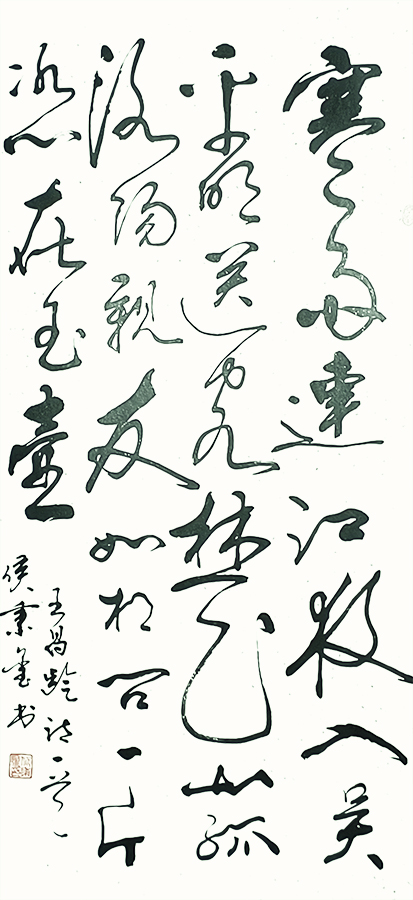 寒雨連江夜入吴
平明送客楚山孤
洛陽親友如相问一片
冰心在玉壺
王昌齡诗一首
侯秉金书